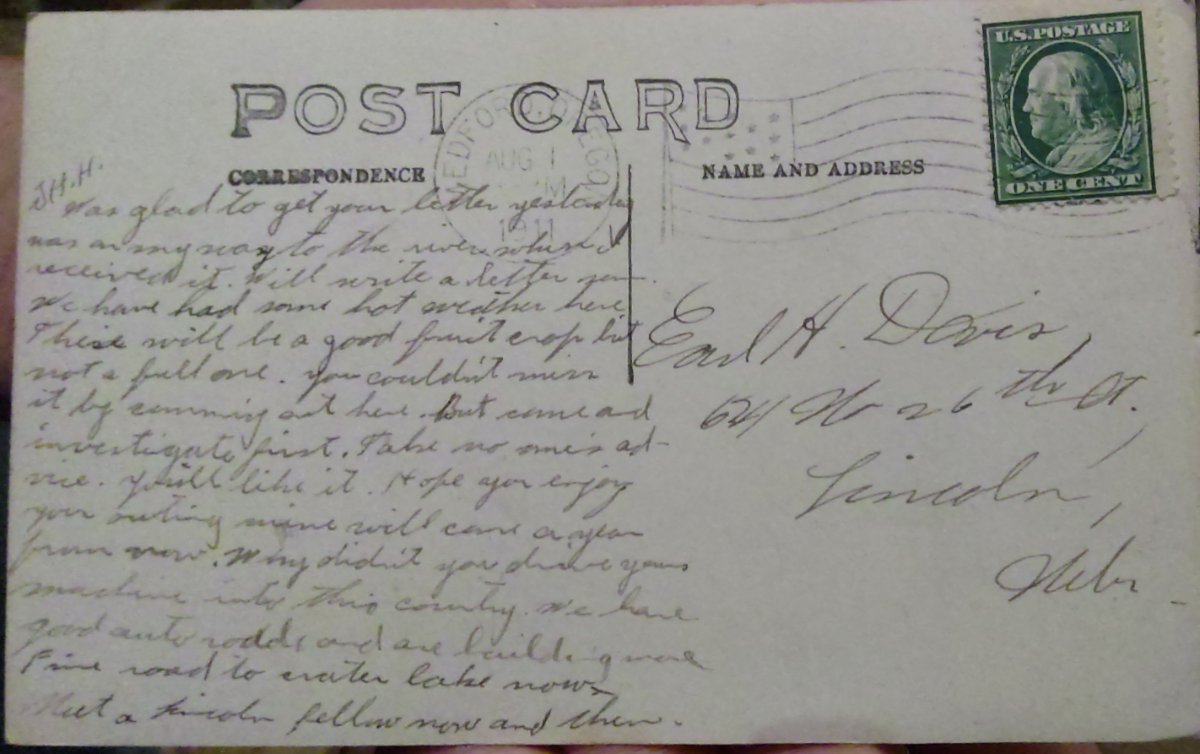 U.S. POSTAGE
ONE CENT
POST CARD
MEDFORD, OREGON
AUG 1
M
1911
CORRESPONDENCE
NAME AND ADDRESS
J.H.H.
Was glad to get your letter yesterday
was on my way to the river when I
received it. Will write a letter soon.
We have had some hot weather here
There will be a good fruit crop but
not a full one. You couldn't miss
it by comming out here. But come and
investigate first. Take no one's ad-
vice. You'll like it. Hope you enjoy
your outing mine will come a year
from now. Why didn't you drive your
machine into this country. We have
good auto roads and are building more
Fine road to crater lake now.
Meet a Lincoln fellow now and then.
Earl H. Davis,
624 No 26th St.,
Lincoln,
Nebr.